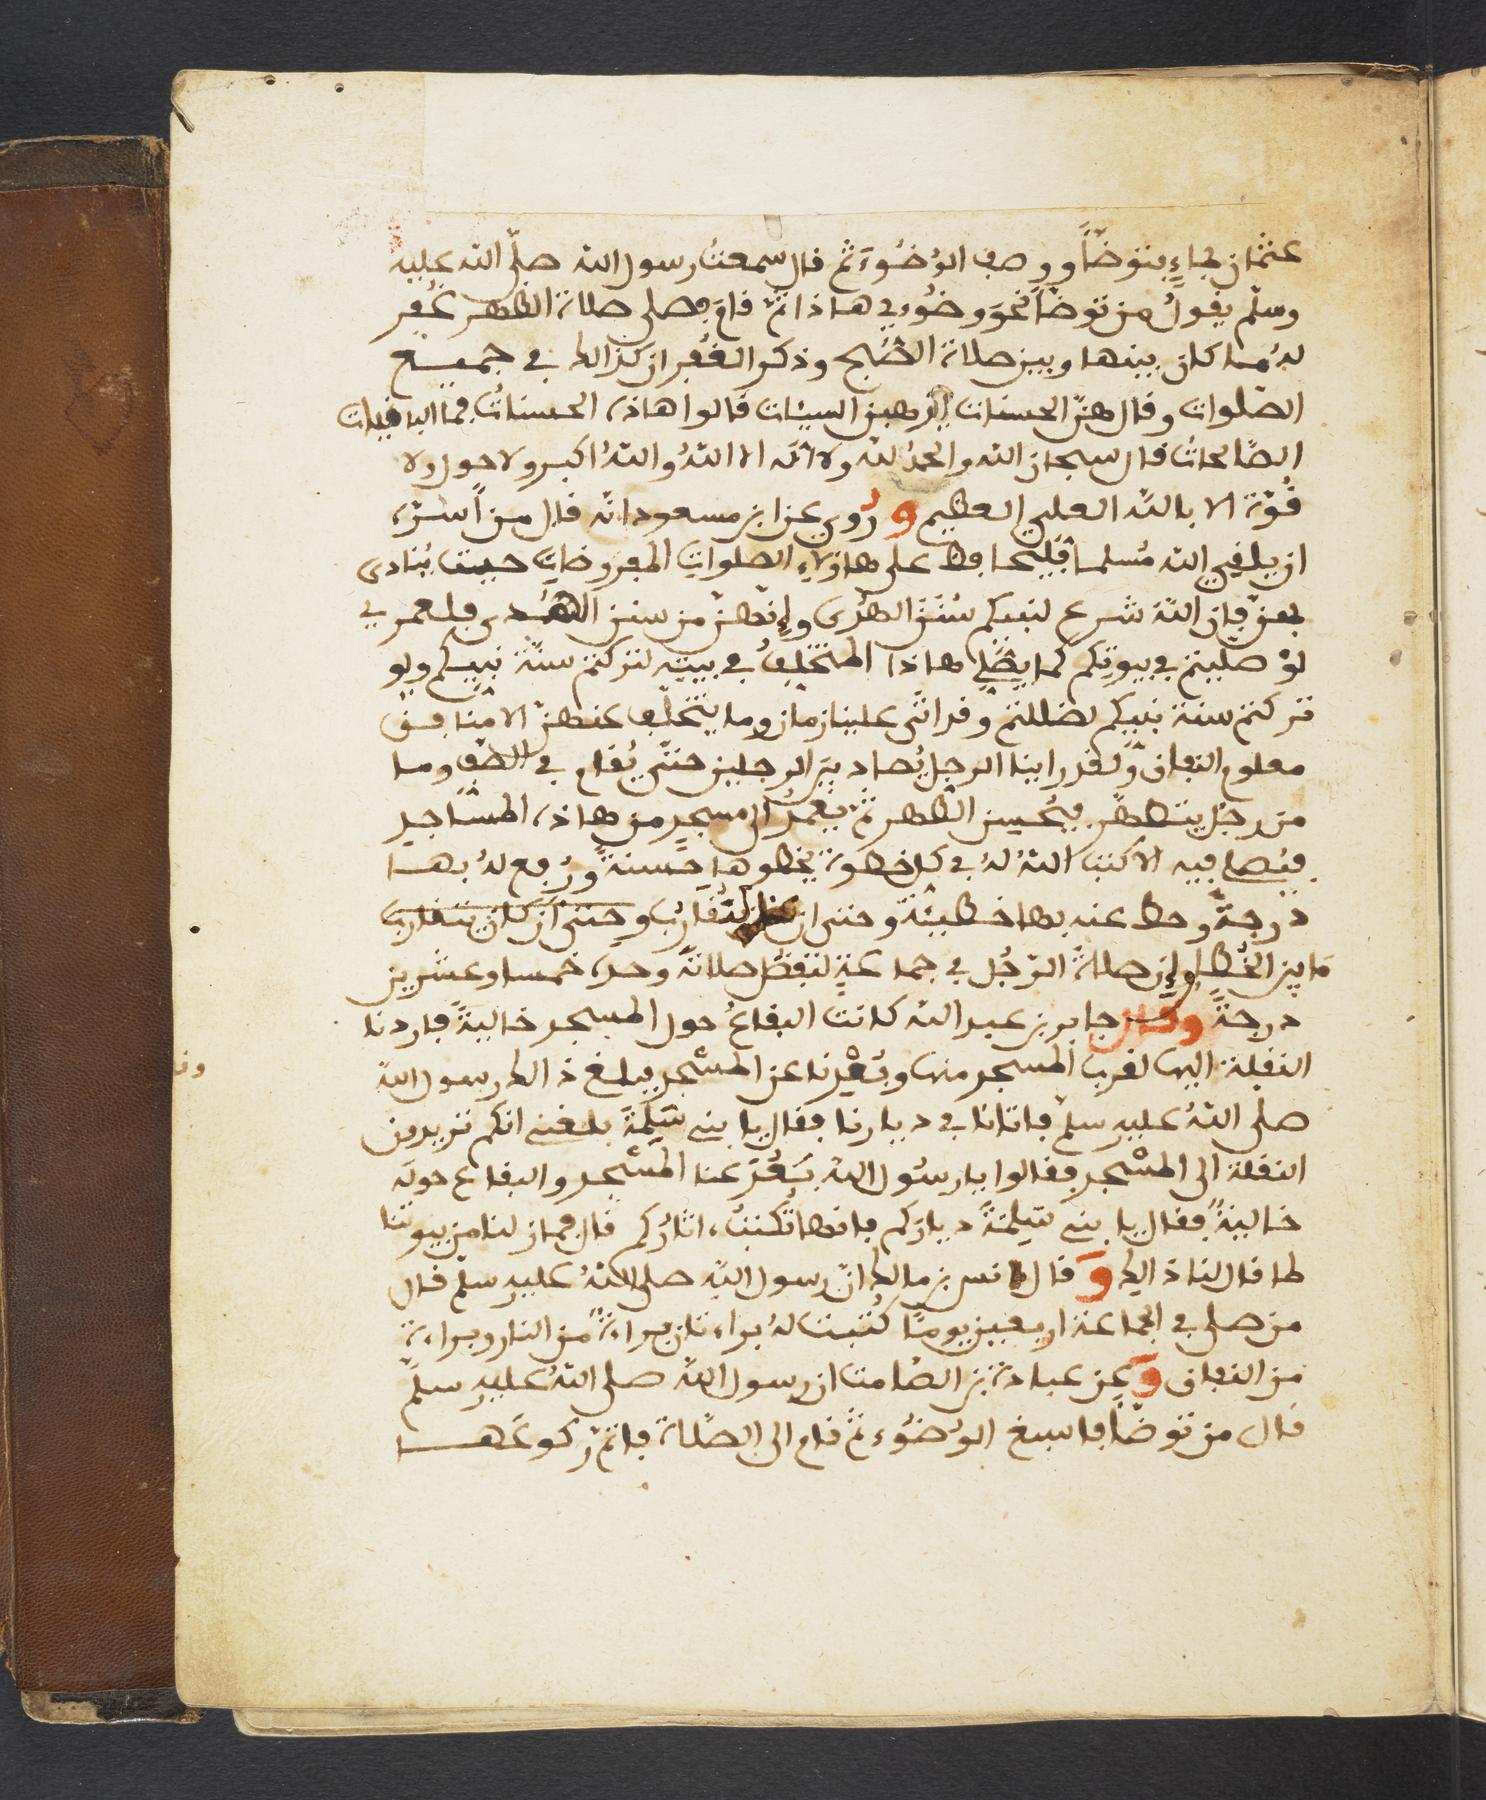 عثمان بماءٍ بتوضّأ ووصف الوُضُوءَ ثم قال سمعتُ رسول الله صلى الله عليه
وسلم يقولُ من توضّأ نحوَ وضُوءي هاذا ثم قام فصلى صلاة الظهر غُفِر
لهُ ما كان بينها وبين صلاة الصُّبح وذكر الغُفران كذالك في جميع
الصّلوات وقال هنّ الحسنات يُذهبن السيئات قالوا هاذه الحسناتُ فما الباقيات
الصّالحات قال سبحان الله والحمدُ لله ولا اله الا اللهُ واللهُ اكبر ولا حول ولا
قُوّة الا بالله العلي العظيم ورُوي عن ابن مسعود انّه قال من أسرّه
ان يلقي الله مُسلما فليحافظ على هاؤلاءِ الصلواتِ المفروضاتِ حيث يُنادى
بهنّ فإن الله شرع لنبيكم سُنَن الهُدَى وإنّهنّ من سنن الهُدى فلعمري
لوْ صليتم في بيوتكم كما يُصَلّي هاذا المتخلّفُ في بيته لتركتم سنّة نبيكم ولو
تركتم سنة نبيكم لضللتم وقد اتَى علينا زمان وما يتخلّف عنهنّ الا منافق
معلوم النفاق ولقد راينا الرجل يُهادى بين الرجلين حتّى يُقام في الصّف وما
من رجُل يتطهّر فيُحسِن الطُّهر ثم يعمدُ الى مسجدٍ من هاذه المساجد
فيُصلي فيه الا كتب اللهُ لهُ في كل خطوة يخطوها حسنةً ورُفع لهُ بها
درجةٌ وحط عنه بها خطيئةٌ وحتى ان كنا لنُقَارِبُ وحتى ان كان يتقارب
مَا بين الخُطا وإن صلاةَ الرّجُل في جماعةٍ لتفضُل صلاتَه وحدَه خمسا وعشرين
درجةً وقال جابر بن عبد الله كانت البقاعُ حول المسجد خاليةً فاردنا
النقلة اليها لقرب المسجد منها وبُعْدِنا عن المسْجد فبلغ ذالك رسول الله
صلى اللهُ عليه وسلم فاتانا في ديارنا فقال يا بني سَلِمَةَ بلغني انكم تريدون
النقلة الى المسْجد فقالوا يا رسُول الله بَعُدَ عنا المَسْجد والبقاع حوله
خاليةً فقال يا بني سَلِمَةَ دياركم فانها تُكتبُ اثارُكم قال فما زلنا من بيوتنا
لما قال لنا ذالك وقال انس بن مالك انّ رسول الله صلى اللهُ عليه وسلم قال
من صلى في الجماعة اربعين يوما كُتبت لهُ براءتان براءةٌ من النار وبراءة
من النفاق وعن عبادة بن الصّامت ان رسول الله صلى اللهُ عليه وسلم
قال من توضّأ فاسبغ الوُضُوءَ ثم قام الى الصّلاة فاتمّ ركوعَها